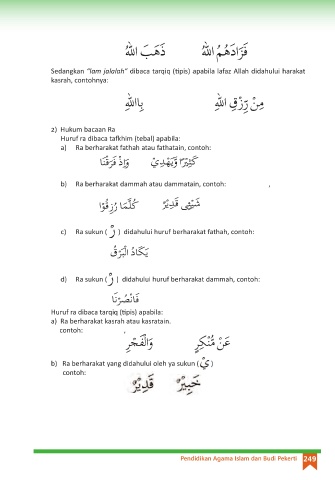 فَزَادَهُمُ اللّٰهُ ذَهَبَ اللّٰهُ
Sedangkan "lam jalalah" dibaca tarqiq (tipis) apabila lafaz Allah didahului harakat
kasrah, contohnya:
مِنْ رِّزْقِ اللّٰهِ بِاللّٰهِ
2) Hukum bacaan Ra
Huruf ra dibaca tafkhim (tebal) apabila:
a) Ra berharakat fathah atau fathatain, contoh:
كَثِيْرًا وَّيَهْدِيْ وَاِذْ فَرَقْنَا
b) Ra berharakat dammah atau dammatain, contoh: ,
شَيْءٍ قَدِيْرٌ كُلَّمَا رُزِقُوْا
c) Ra sukun ( رْ ) didahului huruf berharakat fathah, contoh:
يَكَادُ الْبَرْقُ
d) Ra sukun ( رْ ) didahului huruf berharakat dammah, contoh:
فَانْصُرْنَا
Huruf ra dibaca tarqiq (tipis) apabila:
a) Ra berharakat kasrah atau kasratain.
contoh: ,
عَنْ مُّنْكَرٍ وَالْفَجْرِ
b) Ra berharakat yang didahului oleh ya sukun ( يْ )
contoh:
خَبِيْرٌ قَدِيْرٌ
Pendidikan Agama Islam dan Budi Pekerti 249